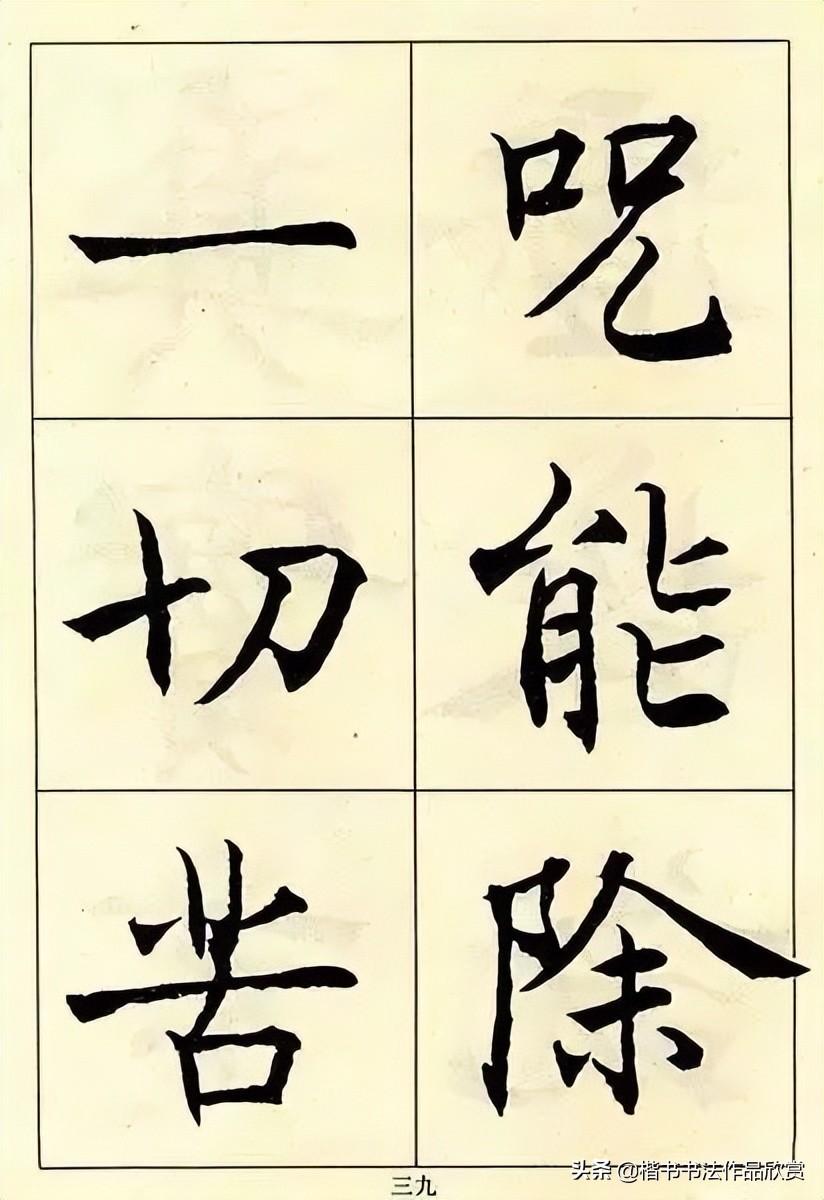 呪能除
一切苦
三九
头条 @楷书书法作品欣赏